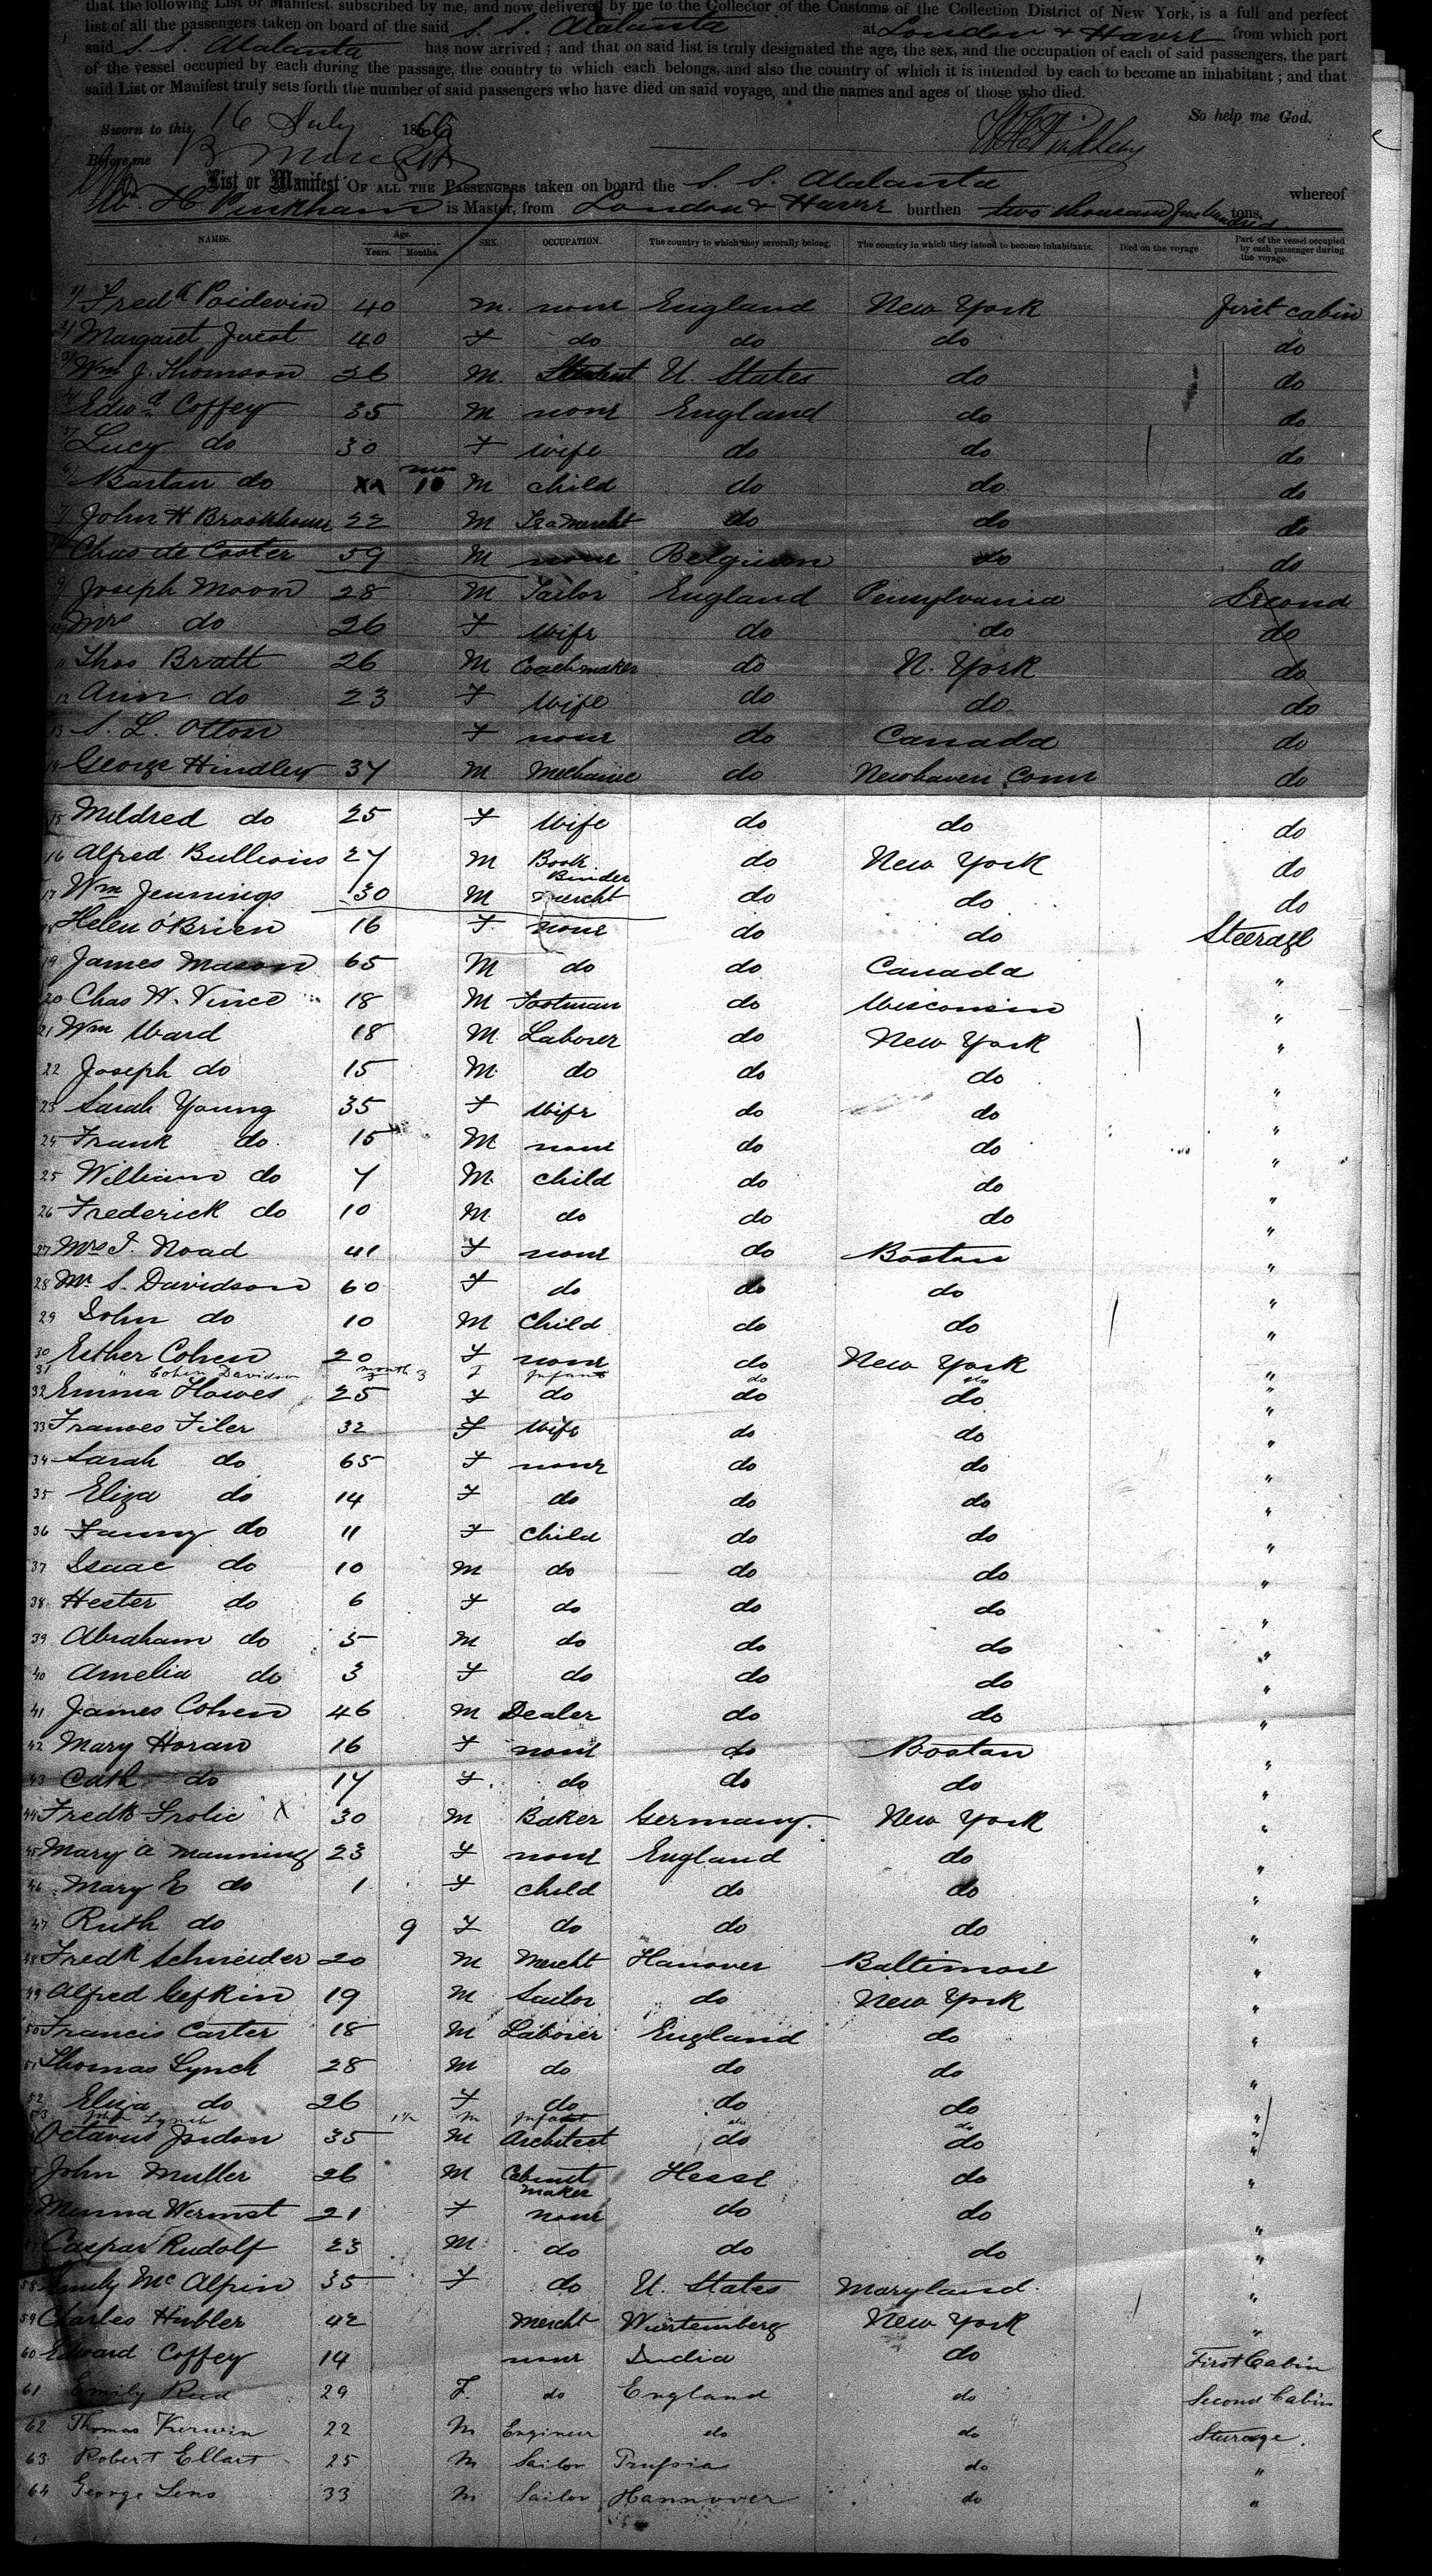 that the following List or Manifest, subscribed by me, and now delivered by me to the Collector of the Customs of the Collection District of New York, is a full and perfect
list of all the passengers taken on board of the said S. S. Atalanta at London & Havre from which port
said S. S. Atalanta has now arrived; and that on said list is truly designated the age, the sex, and the occupation of each of said passengers, the part
of the vessel occupied by each during the passage, the country to which each belongs, and also the country of which it is intended by each to become an inhabitant; and that
said List or Manifest truly sets forth the number of said passengers who have died on said voyage, and the names and ages of those who died.
So help me God.
Sworn to this 16 July 1866
Before me
List or Manifest OF ALL THE PASSENGERS taken on board the S. S. Atalanta whereof
W. H. Pinkham is Master, from London & Havre burthen two thousand five hundred tons.
NAMES. Age. Years. Months. SEX. OCCUPATION. The country to which they severally belong. The country in which they intend to become inhabitants. Died on the voyage Part of the vessel occupied by each passenger during the voyage.
1 Fredk Poidevin 40 M. none England New York first cabin
2 Margaret Jucot 40 F do do do do
3 Wm J. Thomson 26 M. Student U. States do do
4 Edwd Coffey 35 M none England do do
5 Lucy do 30 F wife do do do
6 Bartan do mos 10 M child do do do
7 John H Brookhouse 22 M Tea Mercht do do do
8 Chas de Coster 59 M none Belgium do do
9 Joseph Moon 28 M Tailor England Pennsylvania Second
10 Mrs do 26 F Wife do do do
11 Thos Bratt 26 M Coachmaker do N. York do
12 Ann do 23 F Wife do do do
13 S. L. Otton F none do Canada do
14 George Hindley 37 M Mechanic do Newhaven Conn do
15 Mildred do 25 F Wife do do do
16 Alfred Bullivis 27 M Book Binder do New York do
17 Wm Jennings 30 M Mercht do do do
18 Helen O'Brien 16 F. none do do Steerage
19 James Mason 65 M do do Canada "
20 Chas W. Vince 18 M Footman do Wisconsin "
21 Wm Ward 18 M Laborer do New York "
22 Joseph do 15 M do do do "
23 Sarah Young 35 F Wife do do "
24 Frank do 15 M none do do "
25 William do 7 M child do do "
26 Frederick do 10 M do do do "
27 Mrs J. Noad 41 F none do Boston "
28 Mr. S. Davidson 60 F do do do "
29 John do 10 M Child do do "
30 Esther Cohen 20 F none do New York "
31 " Cohen Davidson month 3 F Infant do do "
32 Emma Howes 25 F do do do "
33 Frances Filer 32 F Wife do do "
34 Sarah do 65 F none do do "
35 Eliza do 14 F do do do "
36 Fanny do 11 F Child do do "
37 Isaac do 10 M do do do "
38 Hester do 6 F do do do "
39 Abraham do 5 M do do do "
40 Amelia do 3 F do do do "
41 James Cohen 46 M Dealer do do "
42 Mary Horan 16 F none do Boston "
43 Cath do 17 F. do do do "
44 Fredk Frolic X 30 M Baker Germany. New York "
45 Mary A Manning 23 F none England do "
46 Mary E do 1 F child do do "
47 Ruth do 9 F do do do "
48 Fredk Schneider 20 M Mercht Hanover Baltimore "
49 Alfred Gefkin 19 M Sailor do New York "
50 Francis Carter 18 M Laborer England do "
51 Thomas Lynch 28 M do do do "
52 Eliza do 26 F do do do "
53 John Lynch M Infant do do "
Octavus Jordon 35 M Architect do do "
John Muller 26 M Cabinet Maker Hesse do "
Minna Wermst 21 F none do do "
Caspar Rudolf 23 M do do do "
58 Emily McAlpin 35 F do U. States Maryland "
59 Charles Hubler 42 Mercht Wurtemberg New York "
60 Edward Coffey 14 none India do First Cabin
61 Emily Reed 29 F. do England do Second Cabin
62 Thomas Kerwin 22 M Engineer do do Steerage.
63 Robert Ellart 25 M Sailor Prussia do "
64 George Lens 33 M Sailor Hannover do "